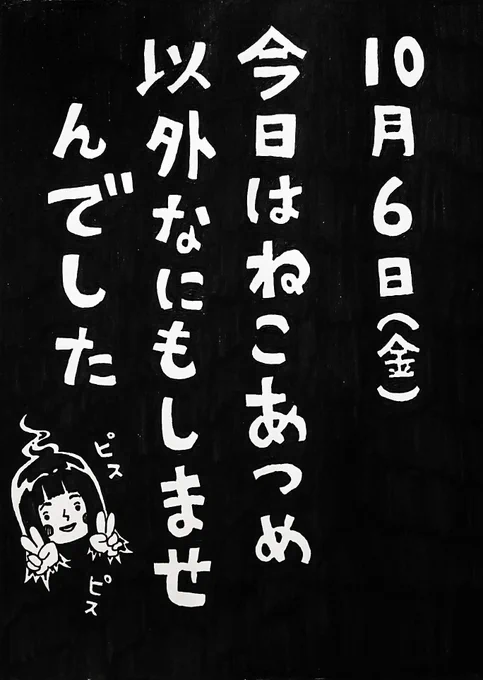 10月6日(金)
今日はねこあつめ
以外なにもしませ
んでした
ピス
ピス